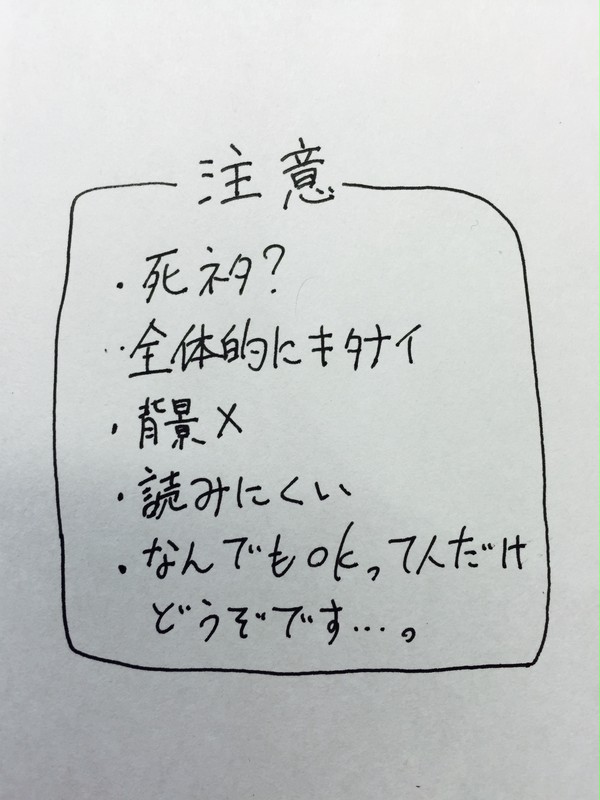 注意
・死ネタ?
・全体的にキタナイ
・背景×
・読みにくい
・なんでもokって人だけ
どうぞです…。